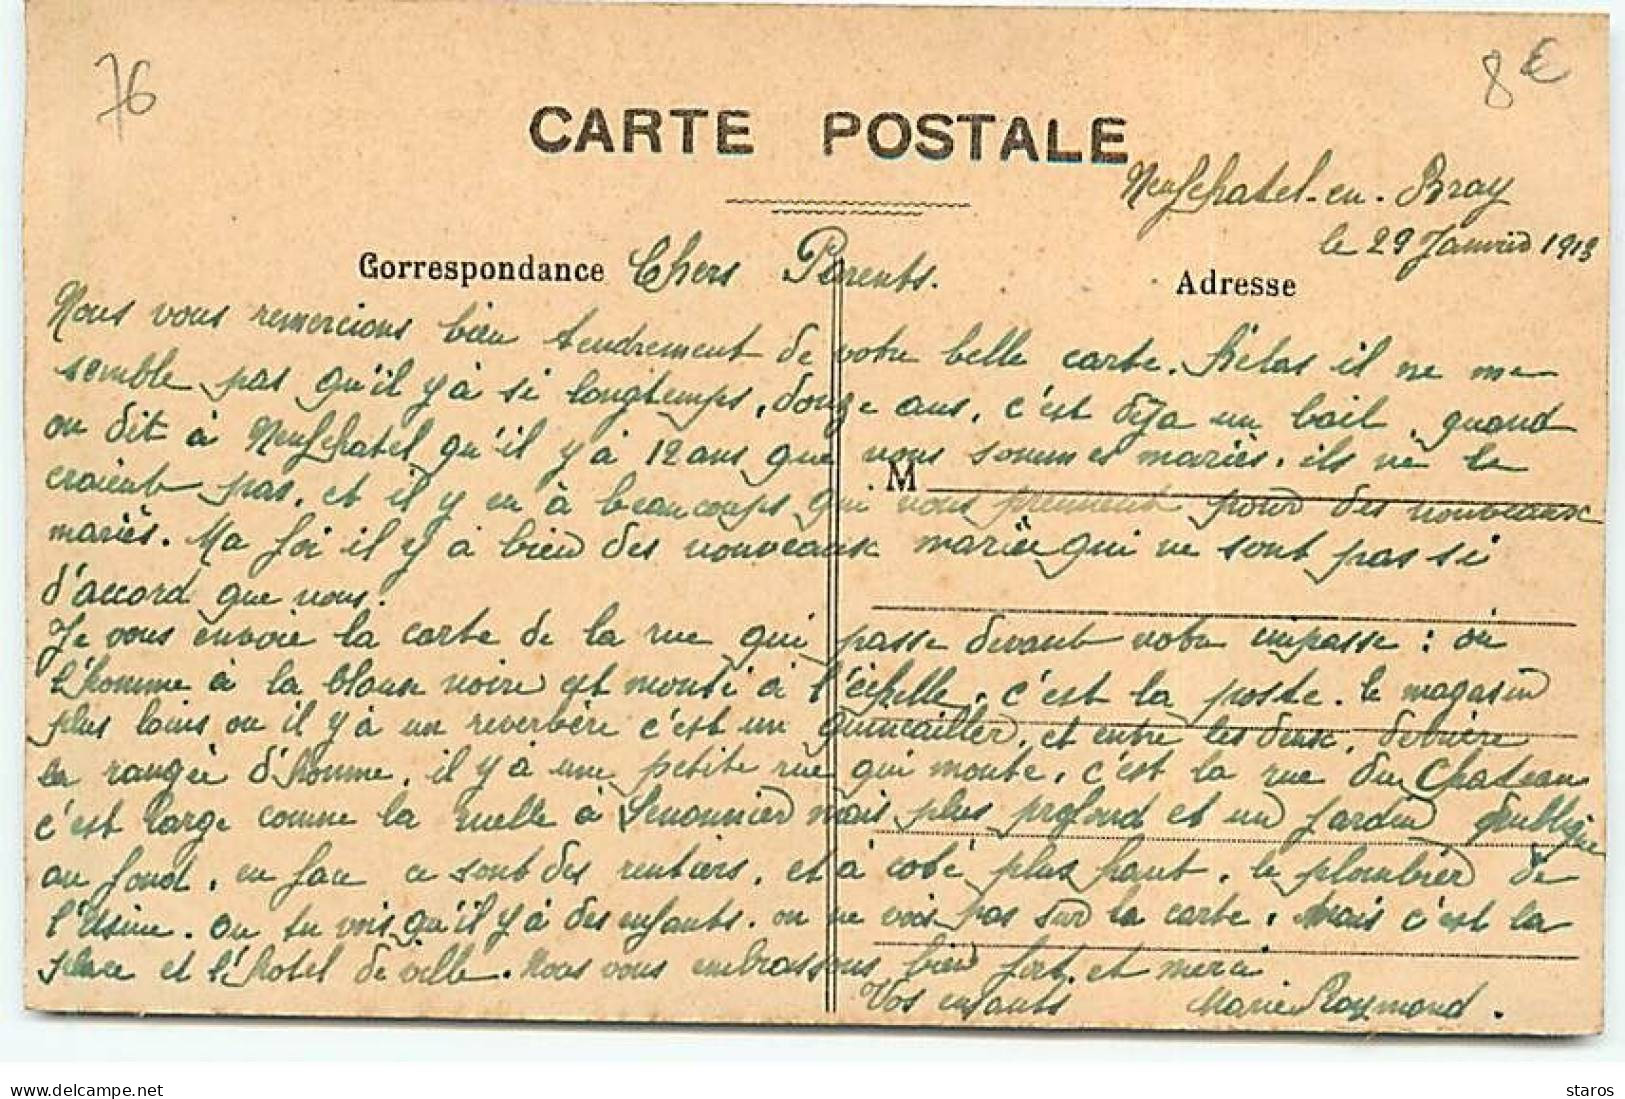 76
8€
CARTE POSTALE
Neufchatel-en-Bray
le 29 Janvier 1913
Correspondance
Chers Parents.
Adresse
Nous vous remercions bien tendrement de votre belle carte. Hélas il ne me
semble pas qu'il y à si longtemps, douze ans, c'est déjà un bail, quand
on dit à Neufchatel qu'il y à 12 ans que nous sommes mariés, ils ne le
M
craient pas, et il y en à beaucoups qui nous prennent pour des nouveaux
mariés. Ma foi il y à bien des nouveaux mariés qui ne sont pas si
d'accord que nous.
Je vous envoie la carte de la rue qui passe devant notre impasse : où
l'homme à la blouse noire est monté à l'échelle, c'est la poste. le magasin
plus loins ou il y à un reverbère c'est un quincailler, et entre les deux, derrière
la rangée d'homme, il y à une petite rue qui monte, c'est la rue du Chateau
c'est large comme la ruelle à mais plus profond et un jardin publique
au fond, en face ce sont des rentiers, et à coté plus haut, le plombier de
l'Usine. ou tu vois qu'il y à des enfants, on ne vois pas sur la carte, mais c'est la
place et l'hotel de ville. Nous vous embrassons bien fort et merci
Vos enfants Marie Raymond.
delcampe.net
staros